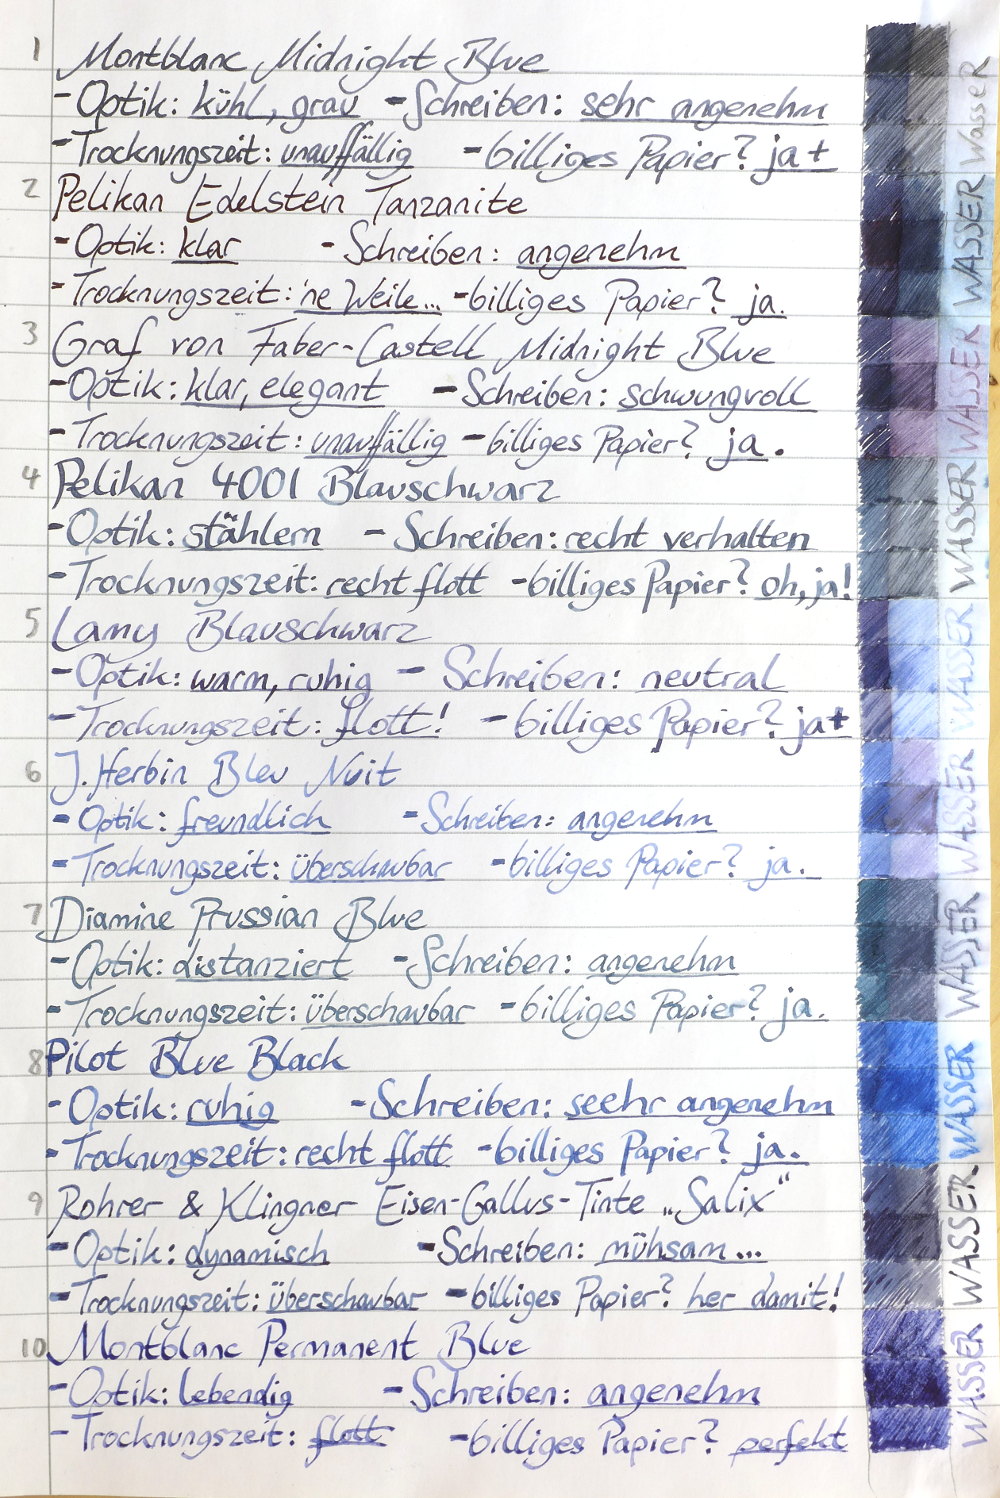 1 Montblanc Midnight Blue
- Optik: kühl, grau - Schreiben: sehr angenehm
- Trocknungszeit: unauffällig - billiges Papier? ja +
2 Pelikan Edelstein Tanzanite
- Optik: klar - Schreiben: angenehm
- Trocknungszeit: 'ne Weile... - billiges Papier? ja.
3 Graf von Faber-Castell Midnight Blue
- Optik: klar, elegant - Schreiben: schwungvoll
- Trocknungszeit: unauffällig - billiges Papier? ja.
4 Pelikan 4001 Blauschwarz
- Optik: stählern - Schreiben: recht verhalten
- Trocknungszeit: recht flott - billiges Papier? oh, ja!
5 Lamy Blauschwarz
- Optik: warm, ruhig - Schreiben: neutral
- Trocknungszeit: flott! - billiges Papier? ja+
6 J. Herbin Bleu Nuit
- Optik: freundlich - Schreiben: angenehm
- Trocknungszeit: überschaubar - billiges Papier? ja.
7 Diamine Prussian Blue
- Optik: distanziert - Schreiben: angenehm
- Trocknungszeit: überschaubar - billiges Papier? ja.
8 Pilot Blue Black
- Optik: ruhig - Schreiben: seehr angenehm
- Trocknungszeit: recht flott - billiges Papier? ja.
9 Rohrer & Klingner Eisen-Gallus-Tinte „Salix“
- Optik: dynamisch - Schreiben: mühsam...
- Trocknungszeit: überschaubar - billiges Papier? her damit!
10 Montblanc Permanent Blue
- Optik: lebendig - Schreiben: angenehm
- Trocknungszeit: flott - billiges Papier? perfekt
Wasser
WASSER
WASSER
WASSER
WASSER
WASSER
WASSER
WASSER
WASSER
WASSER